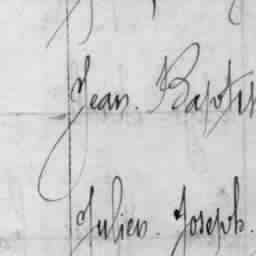 Jean. Baptis
Julien. Joseph.